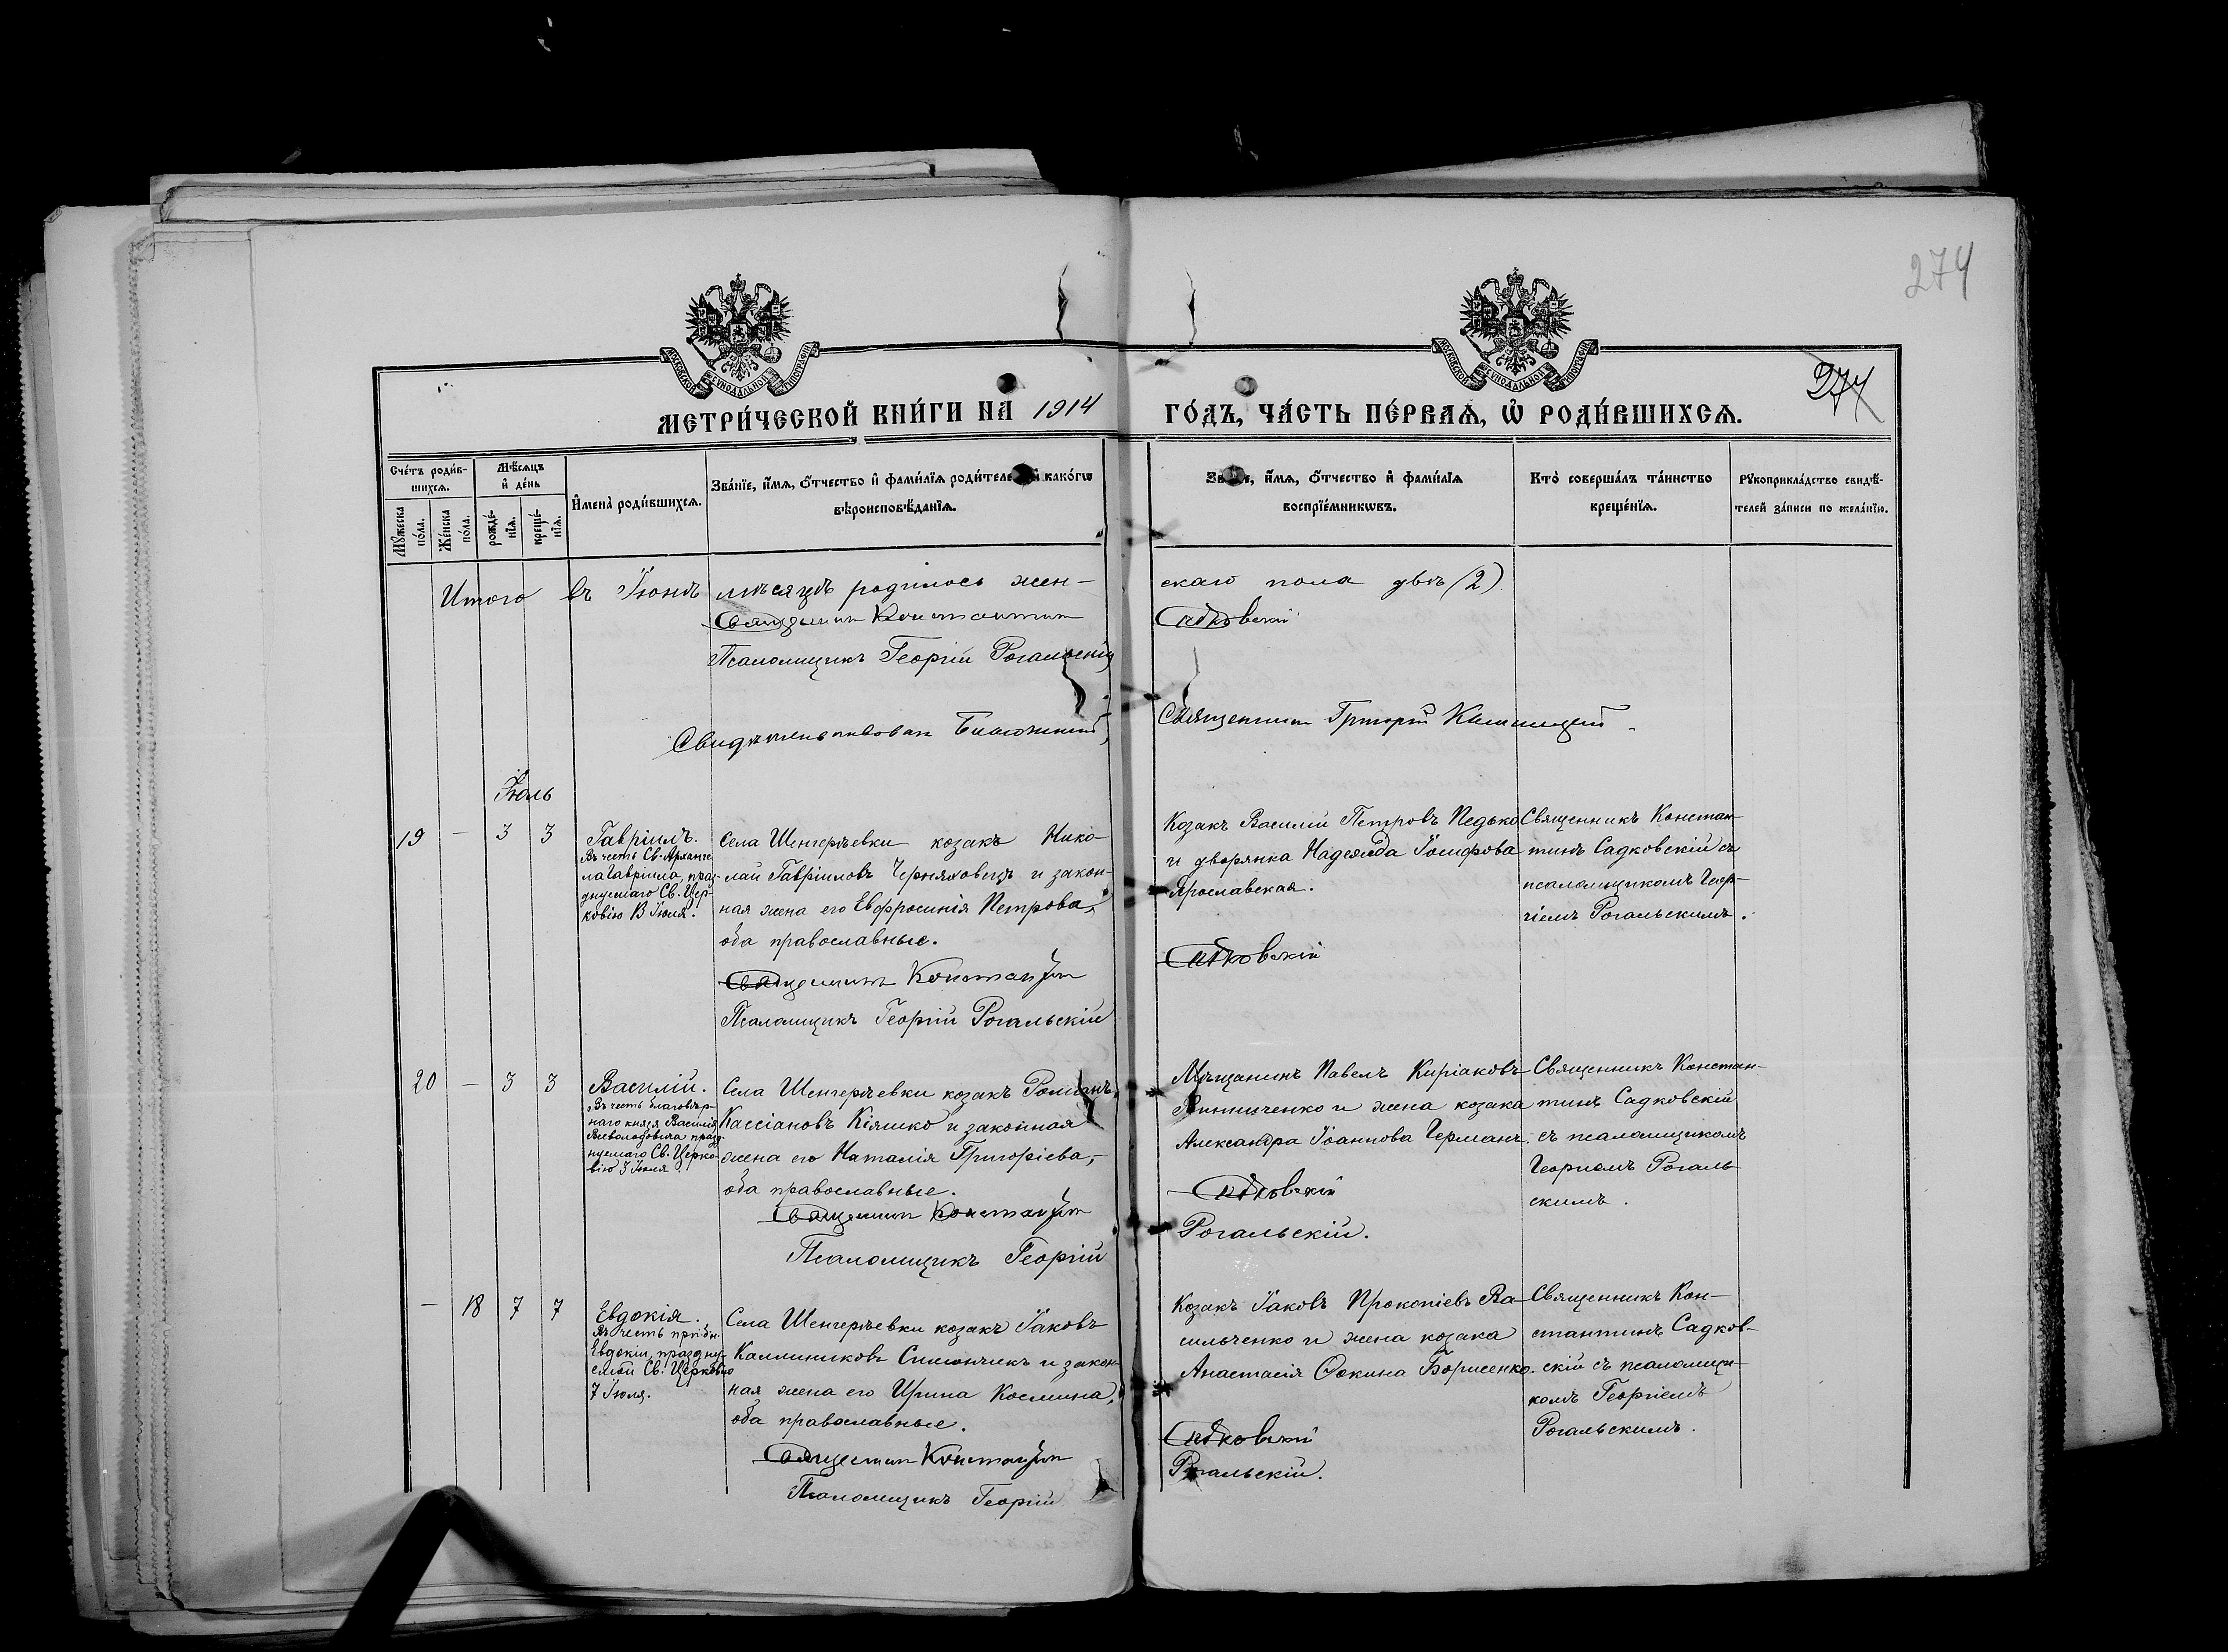 274
МОСКОВСКОЙ СУНОДАЛЬНОЙ ТИПОГРАФІИ
МОСКОВСКОЙ СУНОДАЛЬНОЙ ТИПОГРАФІИ
274
МЕТРИ́ЧЕСКОЙ КНИ́ГИ НА 1914 ГО́ДЪ, ЧА́СТЬ ПЕ́РВАѦ, Ѡ РОДИ́ВШИХСѦ.
Сче́тъ роди́в-
шихсѧ.
Мѣ́сѧцъ
и҆ де́нь
Мꙋ́жеска
по́ла.
Же́нска
по́ла.
рожде́-
нїѧ.
креще́-
нїѧ.
И҆мена̀ роди́вшихсѧ.
Зва́нїе, и҆́мѧ, ѻ҆́тчество и҆ фами́лїѧ роди́теле и҆ како́гѡ
вѣроисповѣ́данїѧ.
Зва́нїе, и҆́мѧ, ѻ҆́тчество и҆ фами́лїѧ
воспрїе́мникѡвъ.
Кто̀ соверша́лъ та́инство
креще́нїѧ.
Рꙋкоприкла́дство свидѣ́-
телей за́писи по жела́нїю.
Итого въ Іюнѣ мѣсяцѣ родилось жен-
скаго пола двѣ (2).
Священникъ Константин Садковскій
Псаломщикъ Георгій Рогальскій
Свидѣтельствовал Священник Григорій
Іюль
19 — 3 3
Гавріилъ.
Въ честь Св. Арханге-
ла Гавріила, праз-
днуемаго Св. Цер-
ковію 13 Іюля.
Села Шенгерѣевки козакъ Нико-
лай Гавріиловъ Черняховецъ и закон-
ная жена его Евфросинія Петрова,
оба православные.
Священникъ Константин
Псаломщикъ Георгій Рогальскій
Козакъ Василій Петровъ Педько
и дворянка Надежда Іосифова
Ярославская.
Садковскій
Священникъ Констан-
тинъ Садковскій съ
псаломщикомъ Геор-
гіемъ Рогальскимъ.
20 — 3 3
Василій.
Въ честь благовѣр-
наго князя Василія
Всеволодовича празд-
нуемаго Св. Церко-
вію 3 Іюля.
Села Шенгерѣевки козакъ Романъ
Кассіановъ Кіяшко и законная
жена его Наталія Григоріева,
оба православные.
Священникъ Константин
Псаломщикъ Георгій
Мѣщанинъ Павелъ Киріаковъ
Винниченко и жена козака
Александра Іоаннова Германъ.
Садковскій
Рогальскій.
Священникъ Констан-
тинъ Садковскій
съ псаломщикомъ
Георгіемъ Рогаль-
скимъ.
— 18 7 7
Евдокія.
Въ честь прпбн.
Евдокіи, праздну-
емой Св. Церковію
7 Іюля.
Села Шенгерѣевки козакъ Іаковъ
Каллиниковъ Симончикъ и закон-
ная жена его Ирина Космина,
оба православные.
Священникъ Константин
Псаломщикъ Георгій
Козакъ Іаковъ Прокопіевъ Ва-
сильченко и жена козака
Анастасія Фокина Борисенко.
Садковскій
Рогальскій.
Священникъ Кон-
стантинъ Садков-
скій съ псаломщи-
комъ Георгіемъ
Рогальскимъ.